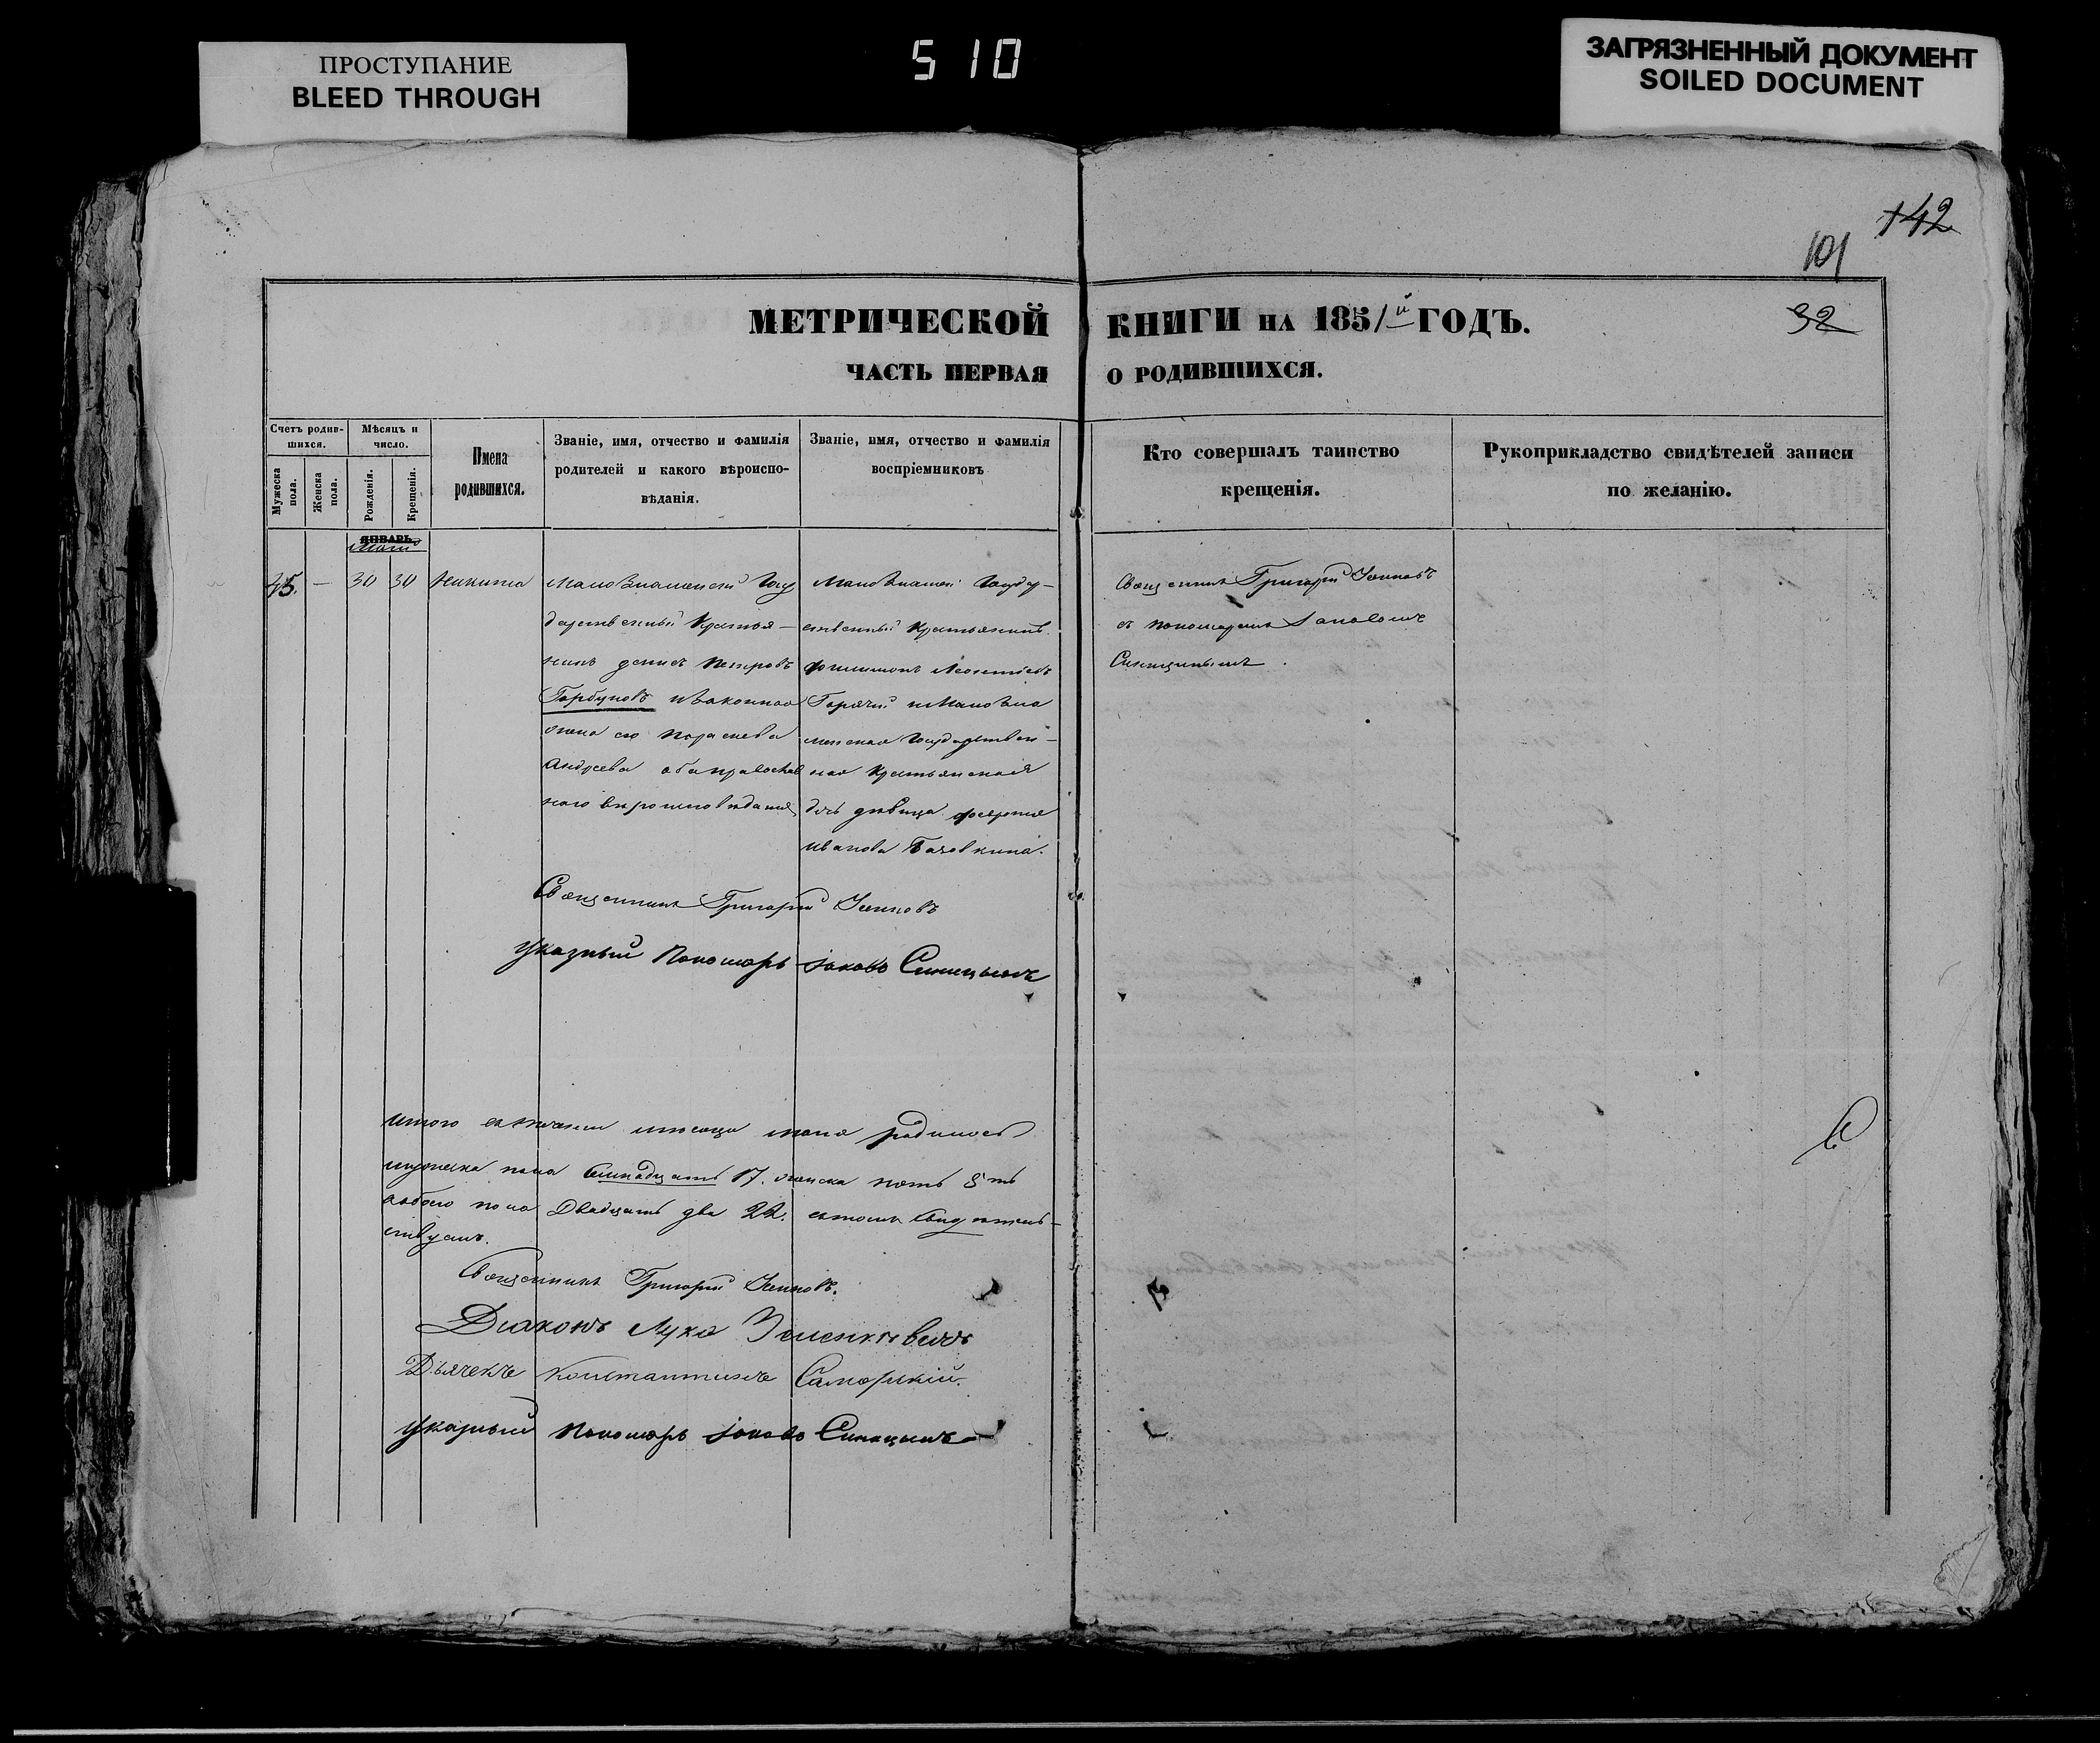 ПРОСТУПАНИЕ
BLEED THROUGH
510
ЗАГРЯЗНЕННЫЙ ДОКУМЕНТ
SOILED DOCUMENT
142
101
32
МЕТРИЧЕСКОЙ КНИГИ НА 1851й ГОДЪ.
ЧАСТЬ ПЕРВАЯ О РОДИВШИХСЯ.
Счетъ родив-
шихся.
Мужеска
пола.
Женска
пола.
Мѣсяцъ и
число.
Рожденія.
Крещенія.
Имена
родившихся.
Званіе, имя, отчество и фамилія
родителей и какого вѣроиспо-
вѣданія.
Званіе, имя, отчество и фамилія
воспріемниковъ
Кто совершалъ таинство
крещенія.
Рукоприкладство свидѣтелей записи
по желанію.
ЯНВАРЬ
Маій
45. — 30 30 Никита
Малознаменскій Госу
дарственный Крестья-
нинъ Денисъ Петровъ
Горбуновъ и законная
жена его Параскева
Андреева оба православ
наго вѣроисповѣданія
Малознамен: Государ-
ственный Крестьянинъ
Филимонъ Леонтіевъ
Горячій и Малозна
менская Государствен-
ная Крестьянская
дочь дѣвица
Иванова
Священникъ Григорій
съ пономаремъ Іаковомъ
Синицынымъ.
Священникъ Григорій
Указный Пономарь Іаковъ Синицынъ
Итого въ маіи мѣсяцѣ родилось
мужеска пола Семнадцать 17. женска пять 5ть
обоего пола Двадцать два 22. въ томъ свидѣтель-
ствуемъ.
Священникъ Григорій
Діаконъ Лука
Дьячекъ Константинъ
Указный Пономарь Іаковъ Синицынъ